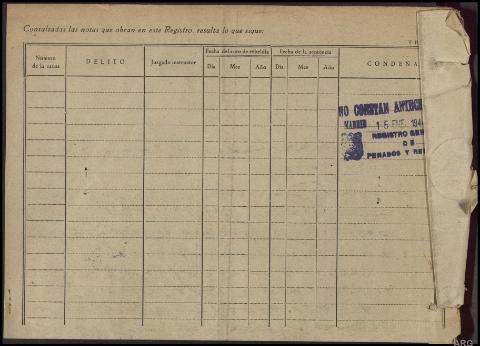 Consultadas las notas que obran en este Registro, resulta lo que sigue:
Número de la causa
DELITO
Juzgado instructor
Fecha del auto de rebeldía
Día Mes Año
Fecha de la sentencia
Día Mes Año
CONDENA
NO CONSTAN ANTECE
MADRID 15 ENE. 194
REGISTRO GEN
DE
PENADOS Y RE
ARG